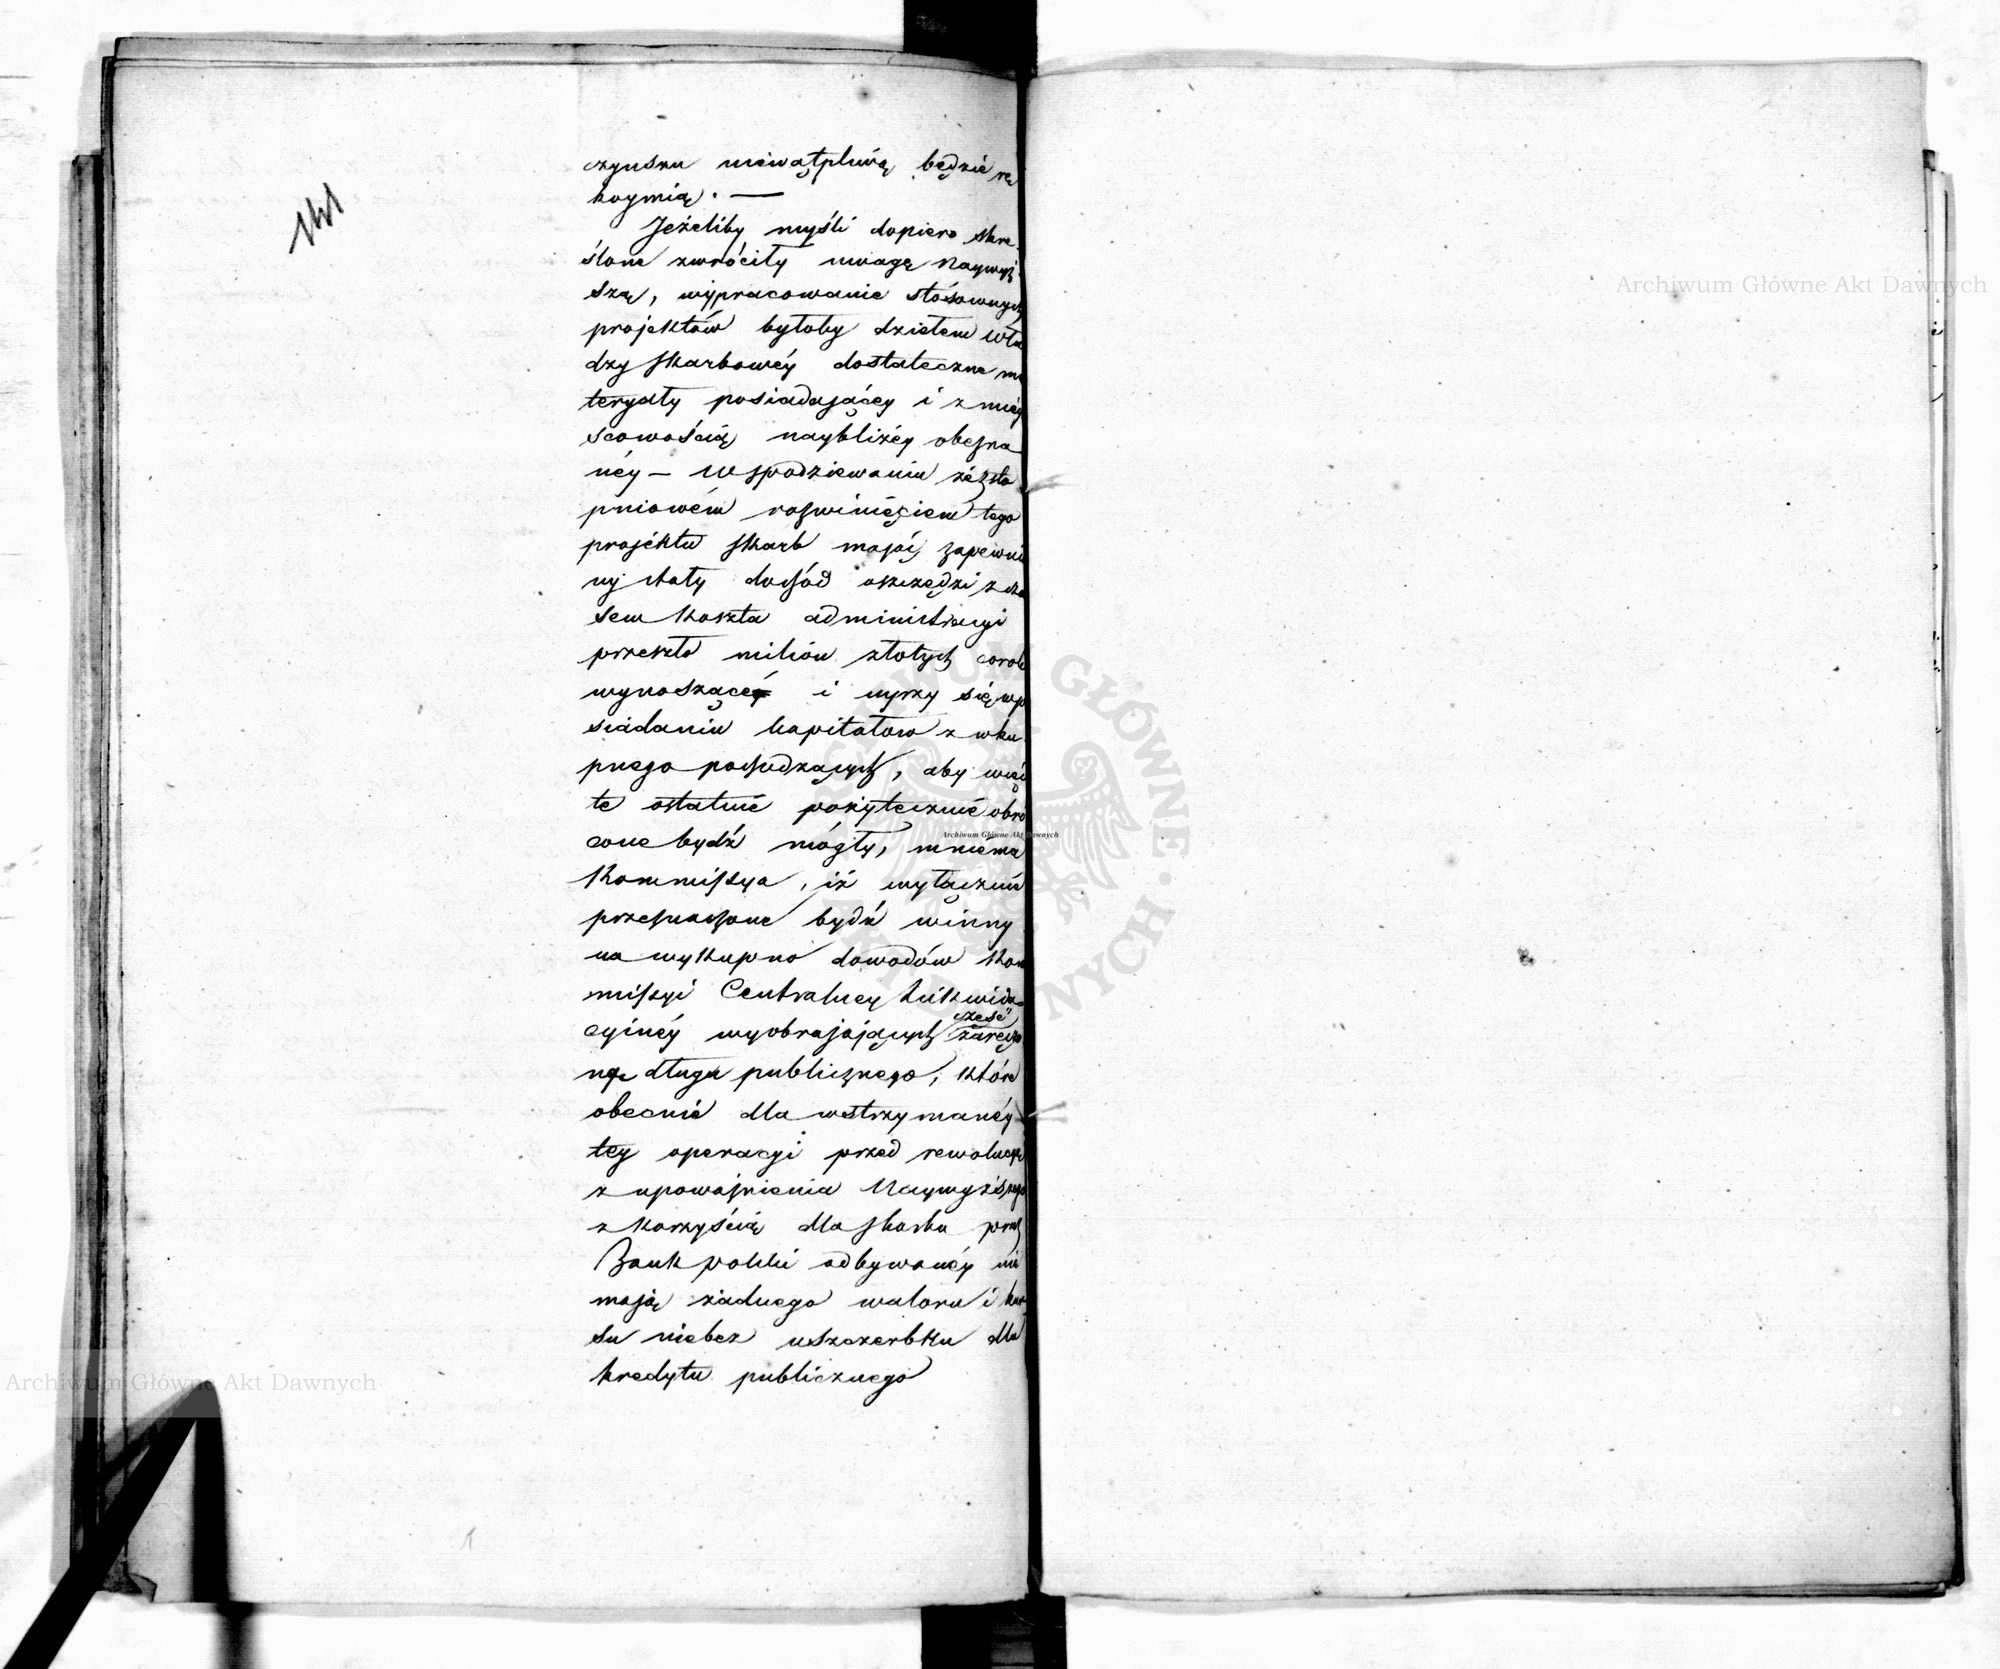 czynszu niewątpliwą będzie rę
koymią. —
Jeżeliby myśli dopiero skre
ślone zwróciły uwagę Naywyż
szą, wypracowanie stósownych
projektów byłoby dziełem Wła
dzy Skarbowéy dostateczne ma
teryały posiadającéy i z miey
scowością naybliżéy obezna
néy — W spodziewaniu że ze sto
pniowém rozwinięciem tego
projektu Skarb mając zapewnio
ny stały dochód oszczędzi z cza
sem koszta administracyi
przeszło milion złotych corok
wynoszące i uyrzy się w po
siadaniu kapitałow z wku
pnego pochodzących, aby więc
te ostatnie pożytecznie obró
cone bydź mógły, mniéma
Kommissya, iż wyłącznie
przeznaczone bydź winny
na wykupno dowodów Kom
missyi Centralney Likwida
cyinéy wyobrażających
część
długu publicznego, które
obecnie dla wstrzymanéy
téy operacyi przed rewolucyą
z upoważnienia Naywyższego
z korzyścią dla Skarbu przez
Bank polski odbywanéy nie
mają żadnego waloru i kur
su niebez uszczerbku dla
kredytu publicznego
Archiwum Główne Akt Dawnych
Archiwum Główne Akt Dawnych
Archiwum Główne Akt Dawnych